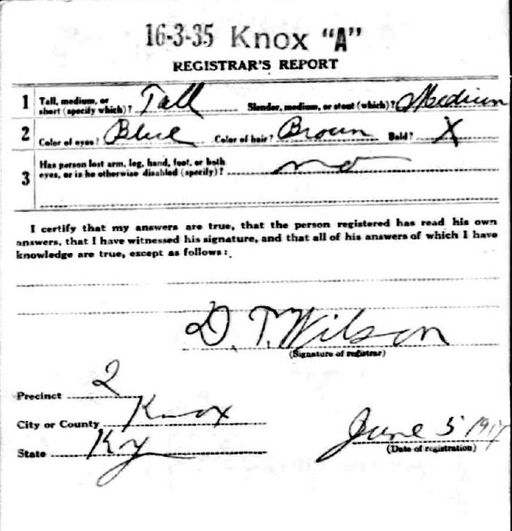 16-3-35 Knox "A"
REGISTRAR'S REPORT
1 Tall, medium, or short (specify which)? Tall Slender, medium, or stout (which)? Medium
2 Color of eyes? Blue Color of hair? Broun Bald? X
3 Has person lost arm, leg, hand, foot, or both eyes, or is he otherwise disabled (specify)? no
I certify that my answers are true, that the person registered has read his own
answers, that I have witnessed his signature, and that all of his answers of which I have
knowledge are true, except as follows:
D. T. Wilson
(Signature of registrar)
Precinct 2
City or County Knox
State Ky
June 5 1917
(Date of registration)